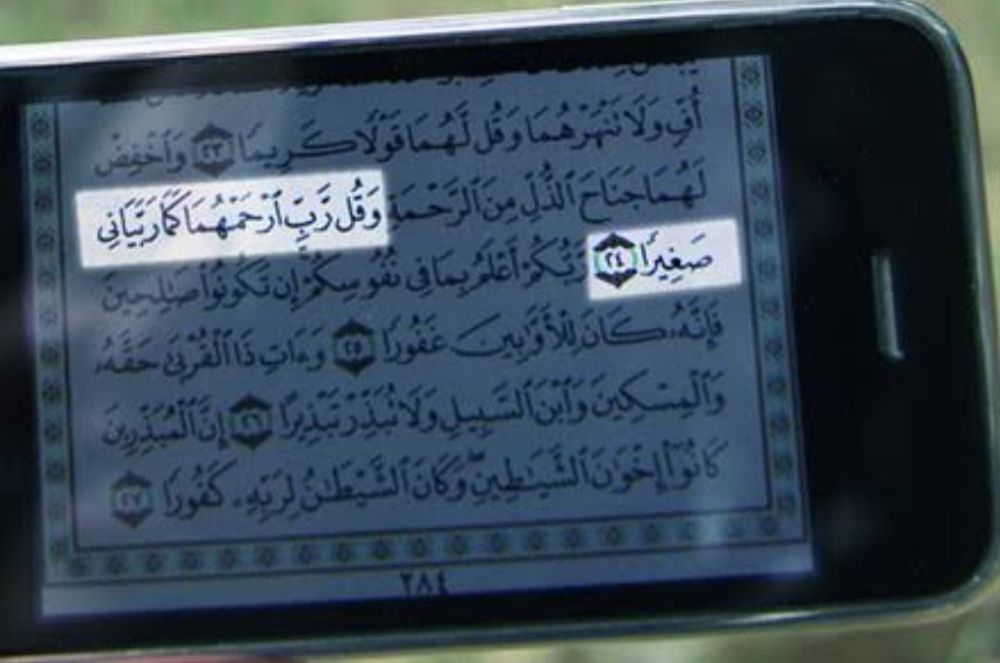 أُفٍّ وَلَا تَنْهَرْهُمَا وَقُل لَّهُمَا قَوْلًا كَرِيمًا ٢٣ وَٱخْفِضْ
لَهُمَا جَنَاحَ ٱلذُّلِّ مِنَ ٱلرَّحْمَةِ وَقُل رَّبِّ ٱرْحَمْهُمَا كَمَا رَبَّيَانِى
صَغِيرًا ٢٤ رَّبُّكُمْ أَعْلَمُ بِمَا فِى نُفُوسِكُمْ إِن تَكُونُوا۟ صَٰلِحِينَ
فَإِنَّهُۥ كَانَ لِلْأَوَّٰبِينَ غَفُورًا ٢٥ وَءَاتِ ذَا ٱلْقُرْبَىٰ حَقَّهُۥ
وَٱلْمِسْكِينَ وَٱبْنَ ٱلسَّبِيلِ وَلَا تُبَذِّرْ تَبْذِيرًا ٢٦ إِنَّ ٱلْمُبَذِّرِينَ
كَانُوٓا۟ إِخْوَٰنَ ٱلشَّيَٰطِينِ ۖ وَكَانَ ٱلشَّيْطَٰنُ لِرَبِّهِۦ كَفُورًا ٢٧
٢٨٤